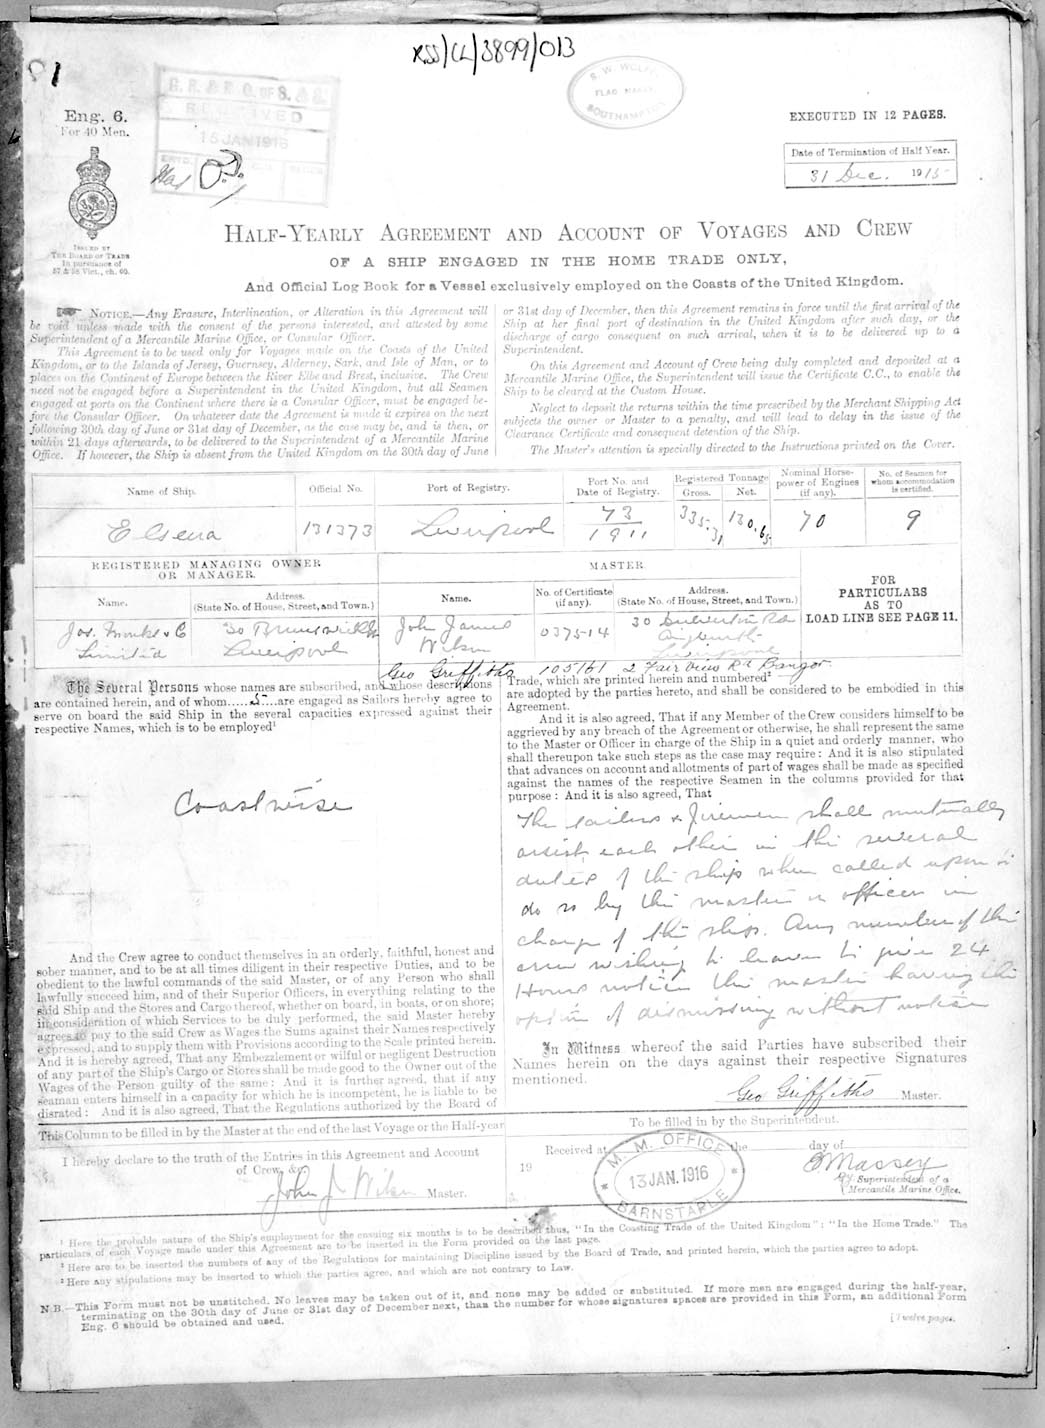 RSS/CL/3899/013
P1
Eng. 6.
For 40 Men.
G. R. & R. O. OF S. & S.
RECEIVED
15 JAN 1916
S. W. WOLFF
FLAG MAKER
SOUTHAMPTON
EXECUTED IN 12 PAGES.
Date of Termination of Half Year.
31 Dec. 1915
ISSUED BY
THE BOARD OF TRADE
In pursuance of
57 & 58 Vict., ch. 60.
HALF-YEARLY AGREEMENT AND ACCOUNT OF VOYAGES AND CREW
OF A SHIP ENGAGED IN THE HOME TRADE ONLY,
And Official Log Book for a Vessel exclusively employed on the Coasts of the United Kingdom.
NOTICE.—Any Erasure, Interlineation, or Alteration in this Agreement will
be void unless made with the consent of the persons interested, and attested by some
Superintendent of a Mercantile Marine Office, or Consular Officer.
This Agreement is to be used only for Voyages made on the Coasts of the United
Kingdom, or to the Islands of Jersey, Guernsey, Alderney, Sark, and Isle of Man, or to
places on the Continent of Europe between the River Elbe and Brest, inclusive. The Crew
need not be engaged before a Superintendent in the United Kingdom, but all Seamen
engaged at ports on the Continent where there is a Consular Officer, must be engaged be-
fore the Consular Officer. On whatever date the Agreement is made it expires on the next
following 30th day of June or 31st day of December, as the case may be, and is then, or
within 21 days afterwards, to be delivered to the Superintendent of a Mercantile Marine
Office. If however, the Ship is absent from the United Kingdom on the 30th day of June
or 31st day of December, then this Agreement remains in force until the first arrival of the
Ship at her final port of destination in the United Kingdom after such day, or the
discharge of cargo consequent on such arrival, when it is to be delivered up to a
Superintendent.
On this Agreement and Account of Crew being duly completed and deposited at a
Mercantile Marine Office, the Superintendent will issue the Certificate C.C., to enable the
Ship to be cleared at the Custom House.
Neglect to deposit the returns within the time prescribed by the Merchant Shipping Act
subjects the owner or Master to a penalty, and will lead to delay in the issue of the
Clearance Certificate and consequent detention of the Ship.
The Master's attention is specially directed to the Instructions printed on the Cover.
Name of Ship. Official No. Port of Registry. Port No. and Date of Registry. Registered Tonnage Gross. Net. Nominal Horse-power of Engines (if any). No. of Seamen for whom accommodation is certified.
131373 Liverpool 73/1911 335.31 130.65 70 9
REGISTERED MANAGING OWNER
OR MANAGER.
MASTER
FOR
PARTICULARS
AS TO
LOAD LINE SEE PAGE 11.
Name. Address. (State No. of House, Street, and Town.) Name. No. of Certificate (if any). Address. (State No. of House, Street, and Town.)
Jos. Monks & Co 30 Brunswick St John James 0375-14 30
Limited Liverpool Wilson Liverpool
Geo Griffiths 105161 2 Fair View Rd Bangor
The Several Persons whose names are subscribed, and whose descriptions
are contained herein, and of whom......5....are engaged as Sailors hereby agree to
serve on board the said Ship in the several capacities expressed against their
respective Names, which is to be employed¹
Coastwise
And the Crew agree to conduct themselves in an orderly, faithful, honest and
sober manner, and to be at all times diligent in their respective Duties, and to be
obedient to the lawful commands of the said Master, or of any Person who shall
lawfully succeed him, and of their Superior Officers, in everything relating to the
said Ship and the Stores and Cargo thereof, whether on board, in boats, or on shore;
in consideration of which Services to be duly performed, the said Master hereby
agrees to pay to the said Crew as Wages the Sums against their Names respectively
expressed, and to supply them with Provisions according to the Scale printed herein.
And it is hereby agreed, That any Embezzlement or wilful or negligent Destruction
of any part of the Ship's Cargo or Stores shall be made good to the Owner out of the
Wages of the Person guilty of the same: And it is further agreed, that if any
seaman enters himself in a capacity for which he is incompetent, he is liable to be
disrated: And it is also agreed, That the Regulations authorized by the Board of
Trade, which are printed herein and numbered²
are adopted by the parties hereto, and shall be considered to be embodied in this
Agreement.
And it is also agreed, That if any Member of the Crew considers himself to be
aggrieved by any breach of the Agreement or otherwise, he shall represent the same
to the Master or Officer in charge of the Ship in a quiet and orderly manner, who
shall thereupon take such steps as the case may require: And it is also stipulated
that advances on account and allotments of part of wages shall be made as specified
against the names of the respective Seamen in the columns provided for that
purpose: And it is also agreed, That
The sailors & Firemen shall mutually
assist each other in the several
duties of the ship when called upon to
do so by the master or officer in
charge of the ship. Any member of the
crew wishing to leave to give 24
Hours notice the master having the
option of dismissing without notice
In Witness whereof the said Parties have subscribed their
Names herein on the days against their respective Signatures
mentioned.
Geo Griffiths Master.
This Column to be filled in by the Master at the end of the last Voyage or the Half-year
I hereby declare to the truth of the Entries in this Agreement and Account
of Crew, &c.
John J Wilson Master.
To be filled in by the Superintendent.
Received at the day of
19
M. M. OFFICE
13 JAN. 1916
BARNSTAPLE
Massey
Superintendent of a
Mercantile Marine Office.
¹ Here the probable nature of the Ship's employment for the ensuing six months is to be described thus, "In the Coasting Trade of the United Kingdom"; "In the Home Trade." The
particulars of each Voyage made under this Agreement are to be inserted in the Form provided on the last page.
² Here are to be inserted the numbers of any of the Regulations for maintaining Discipline issued by the Board of Trade, and printed herein, which the parties agree to adopt.
³ Here any stipulations may be inserted to which the parties agree, and which are not contrary to Law.
N.B.—This Form must not be unstitched. No leaves may be taken out of it, and none may be added or substituted. If more men are engaged during the half-year,
terminating on the 30th day of June or 31st day of December next, than the number for whose signatures spaces are provided in this Form, an additional Form
Eng. 6 should be obtained and used.
[Twelve pages.